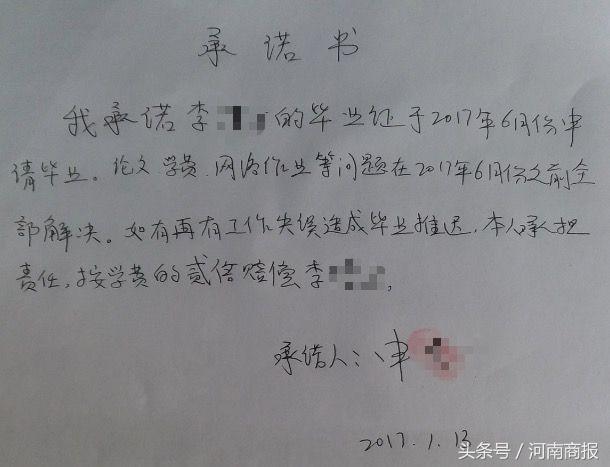 承诺书
我承诺李的毕业证于2017年6月份申
请毕业。论文、学费、网络作业等问题在2017年6月份之前全
部解决。如有再有工作失误造成毕业推迟,本人承担
责任,按学费的贰倍赔偿李。
承诺人:申
2017.1.13
头条号/河南商报